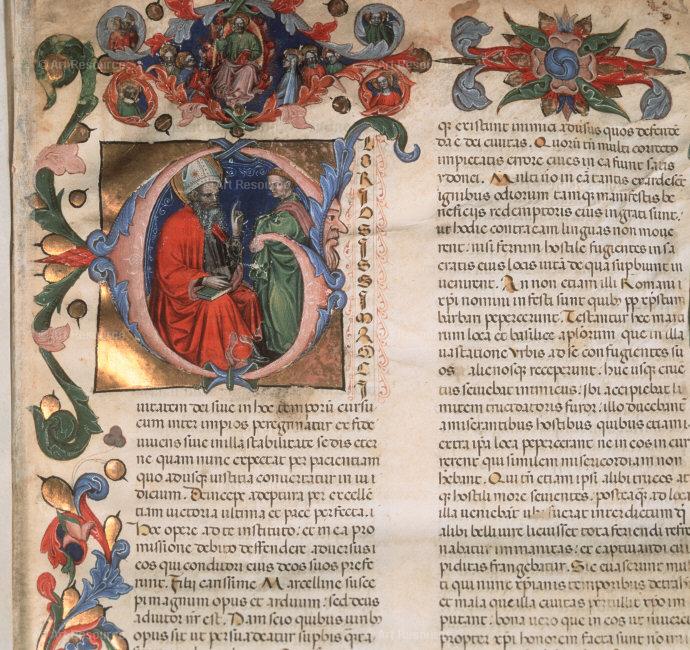 LORIOSISSIMA CI
uitatem dei siue in hoc temporum cursu
cum inter impios peregrinatur ex fide
uiuens siue in illa stabilitate sedis eter
ne quam nunc expectat per pacientiam
quo adusq; iustitia conuertatur in iui
dicium. Deinceps adeptura per excelle
tiam uictoria ultima et pace perfecta. i
hoc opere ad te instituto: et in ea pro
missione debito deffendere aduersus
eos qui conditori eius deos suos prefe
runt. Fili carissime Marcelline susce
pi magnum opus et arduum: sed deus
adiutor nr est. Nam scio quibus uirib
opus sit ut persuadeatur supbis
existunt inimici aduersus quos defende
da e dei ciuitas. Quorum tn multi correcto
impietatis errore ciues in ea fiunt satis
ydonei. Multi uo in ea tantis exardesct
ignibus odiorum tamq manifestis be
neficiis redemptoris eius ingrati sunt.
ut hodie contra eam linguas non moue
rent: nisi ferrum hostile fugientes in sa
cratis eius locis uita de qua supbiunt in
uenirent. An non etiam illi Romani
xpi nomini infesti sunt quibus pp xpm
barbari pepercerunt. Testantur hec marti
rum loca et basilice aplorum que in illa
uastatione urbis ad se confugientes su
os alienosq; receperunt. huc usq; crue
tus seuiebat inimicus: ibi accipiebat li
mitem trucidatoris furor: illo ducebant
a miserantibus hostibus quibus etiam
extra ipa loca pepercerant ne in eos incur
rerent qui similem misericordiam non
hebant. Qui tn etiam ipsi alibi truces at
q; hostili more seuientes. posteaq; ad loca
illa ueniebant ubi fuerat interdictum q
alibi belli iure licuisset tota feriendi refre
nabatur immanitas: et captiuandi cu
piditas frangebatur. Sic euaserunt mul
ti qui nunc xpianis temporibus detrah
et mala que illa ciuitas pertulit xpo im
putant: bona uero que in eos ut uiuere
propter xpi honorem facta sunt no